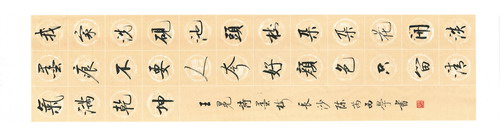 我家洗硯池頭樹朵朵花開淡
墨痕不要人夸好顏色只留清
氣滿乾坤 王冕詩墨梅 長沙陳